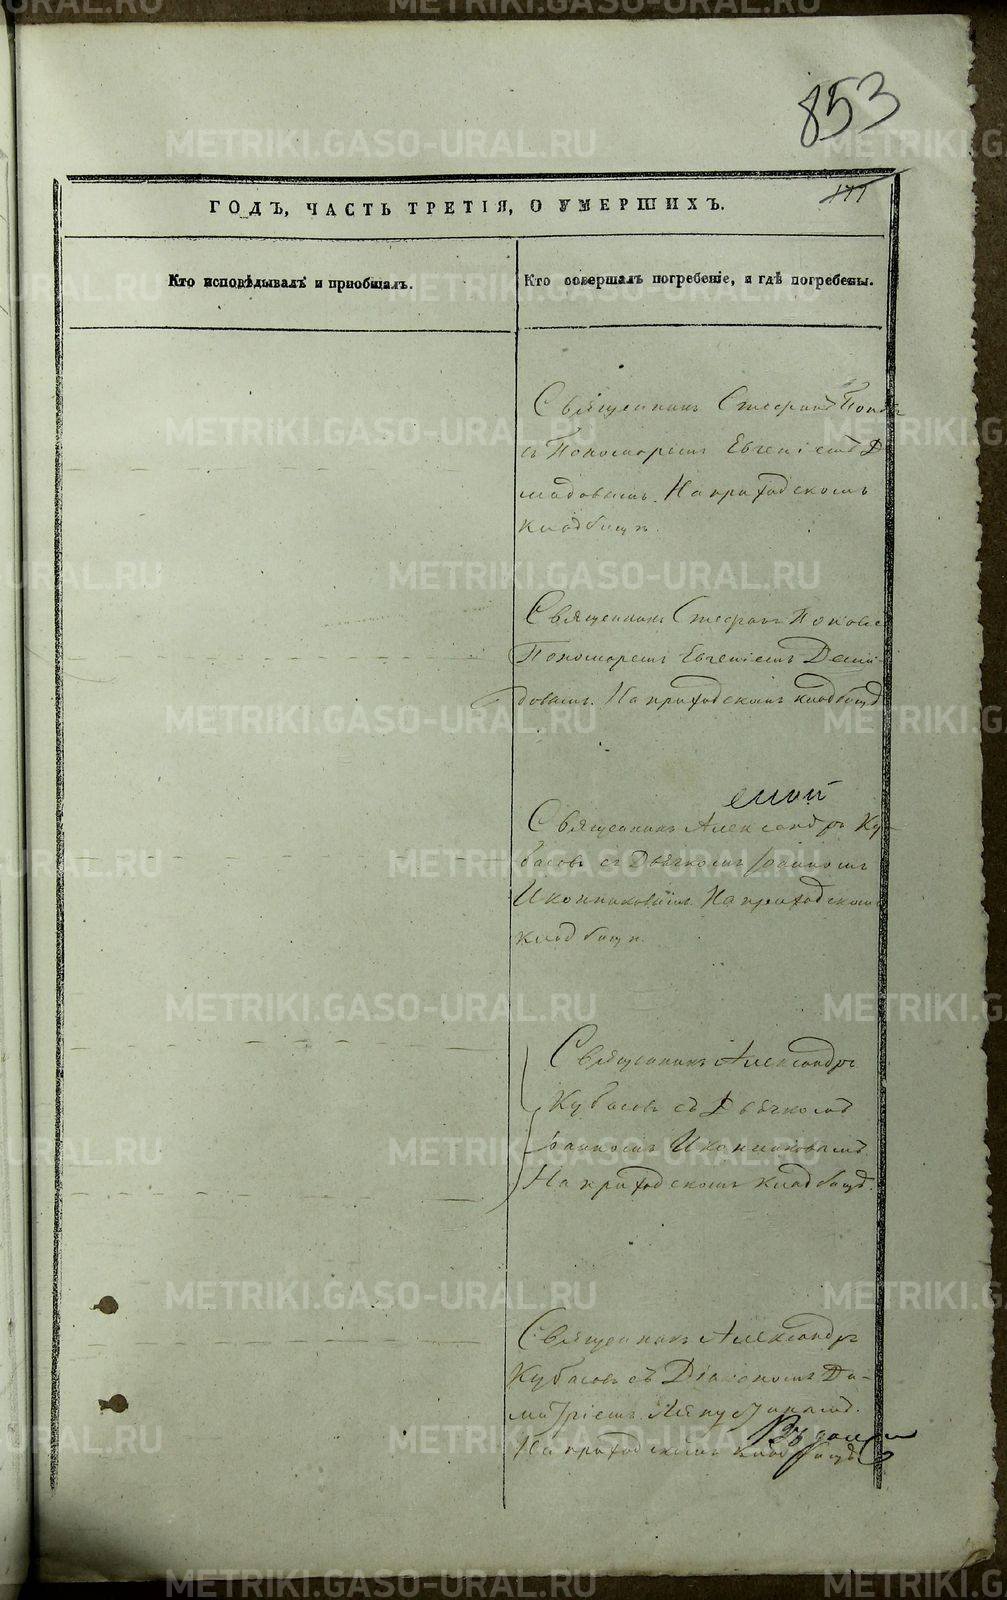 853
177
ГОДЪ, ЧАСТЬ ТРЕТІЯ, О УМЕРШИХЪ.
Кто исповѣдывалъ и пріобщалъ.
Кто совершалъ погребеніе, и гдѣ погребены.
Священникъ Стефанъ Поповъ
съ Пономаремъ Евгеніемъ Де
мидовымъ. На приходскомъ
кладбищѣ.
Священникъ Стефанъ Поповъ с
Пономаремъ Евгеніемъ Деми-
довымъ. На приходскомъ кладбищѣ
Священникъ Александръ Ку-
басовъ съ Дьячкомъ Іоанномъ
Иконниковымъ. На приходскомъ
кладбищѣ.
Священникъ Александръ
Кубасовъ съ Дьячкомъ
Іоанномъ Иконниковымъ
На приходскомъ кладбищѣ.
Священникъ Александръ
Кубасовъ съ Діакономъ Ди-
митріемъ
На приходскомъ кладбищѣ
METRIKI.GASO-URAL.RU